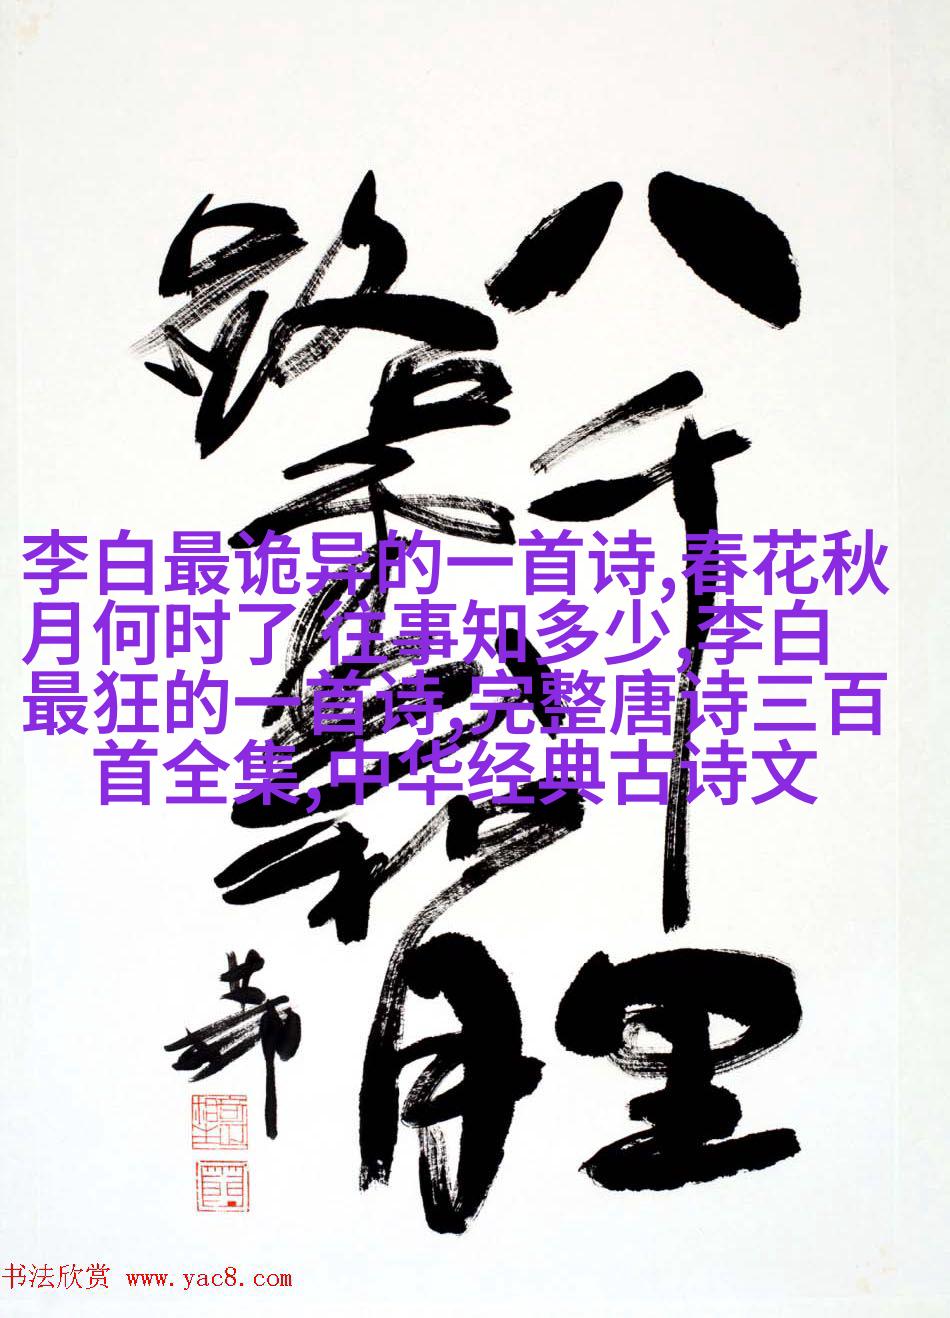 八千里
路雲和月
李白最诡异的一首诗,春花秋
月何时了 往事知多少,李白
最狂的一首诗,完整唐诗三百
首全集,中华经典古诗文
书法欣赏 www.yac8.com